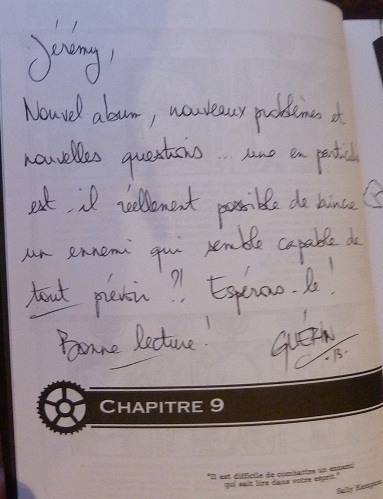 Jérémy,
Nouvel abum, nouveaux problèmes et
nouvelles questions... une en particulier
est-il réellement possible de vaincre
un ennemi qui semble capable de
tout prévoir ?! Espérons-le !
Bonne lecture !
GUÉRIN
.B.
CHAPITRE 9
"Il est difficile de combattre un ennemi
qui sait lire dans votre esprit."
Sally Kempton